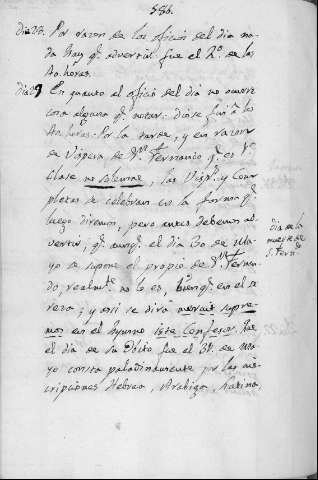 586.
Dia 28. Por razon de los oficios del dia na-
da hay q.e advertir. fue el 2.o de las
40. horas.
Dia 29 En quanto al oficio del dia no ocurre
cosa alguna q.e notar. Diose fin à las
40. horas. Por la tarde, y en razon
de Visperas de S.n Fernando q.e es 1.a
clase no solemne, las Visp.s y Com-
pletas se celebran en la forma q.e
luego diremos, pero antes debemos ad-
vertir, q.e aunq.e el dia 30 de Ma-
yo se supone el propio de S.n Fernan-
do, realm.te no lo es, bien q.e en el re-
zo; y asi se dirà meruit supre-
mos en el Hymno Iste Confesor. Que
el dia de su Obito fue el 31. de Ma-
yo consta paladinamente por las ins-
cripciones Hebrea, Arabiga, Latina
Dia de la
muerte de
S. Fern.do